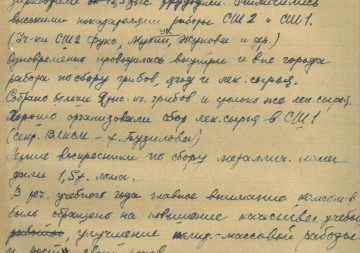 высокими показателями работы СШ2 и СШ1.
(Уч-ки СШ2 Фукс, Жукова и др.)
Одновременно проводилась внутри и вне города
работа по сбору грибов, ягод и лек. сырья.
Собрано больше грибов и столько же лек. сырья.
Хорошо организовали сбор лек. сырья в СШ1
(секр. ВЛКСМ -
воскресники по сбору металлич. лома
дали 1,5 т. лома.
В теч. учебного года главное внимание комсом-в
было обращено на повышение качества учебы
улучшение массовой работы